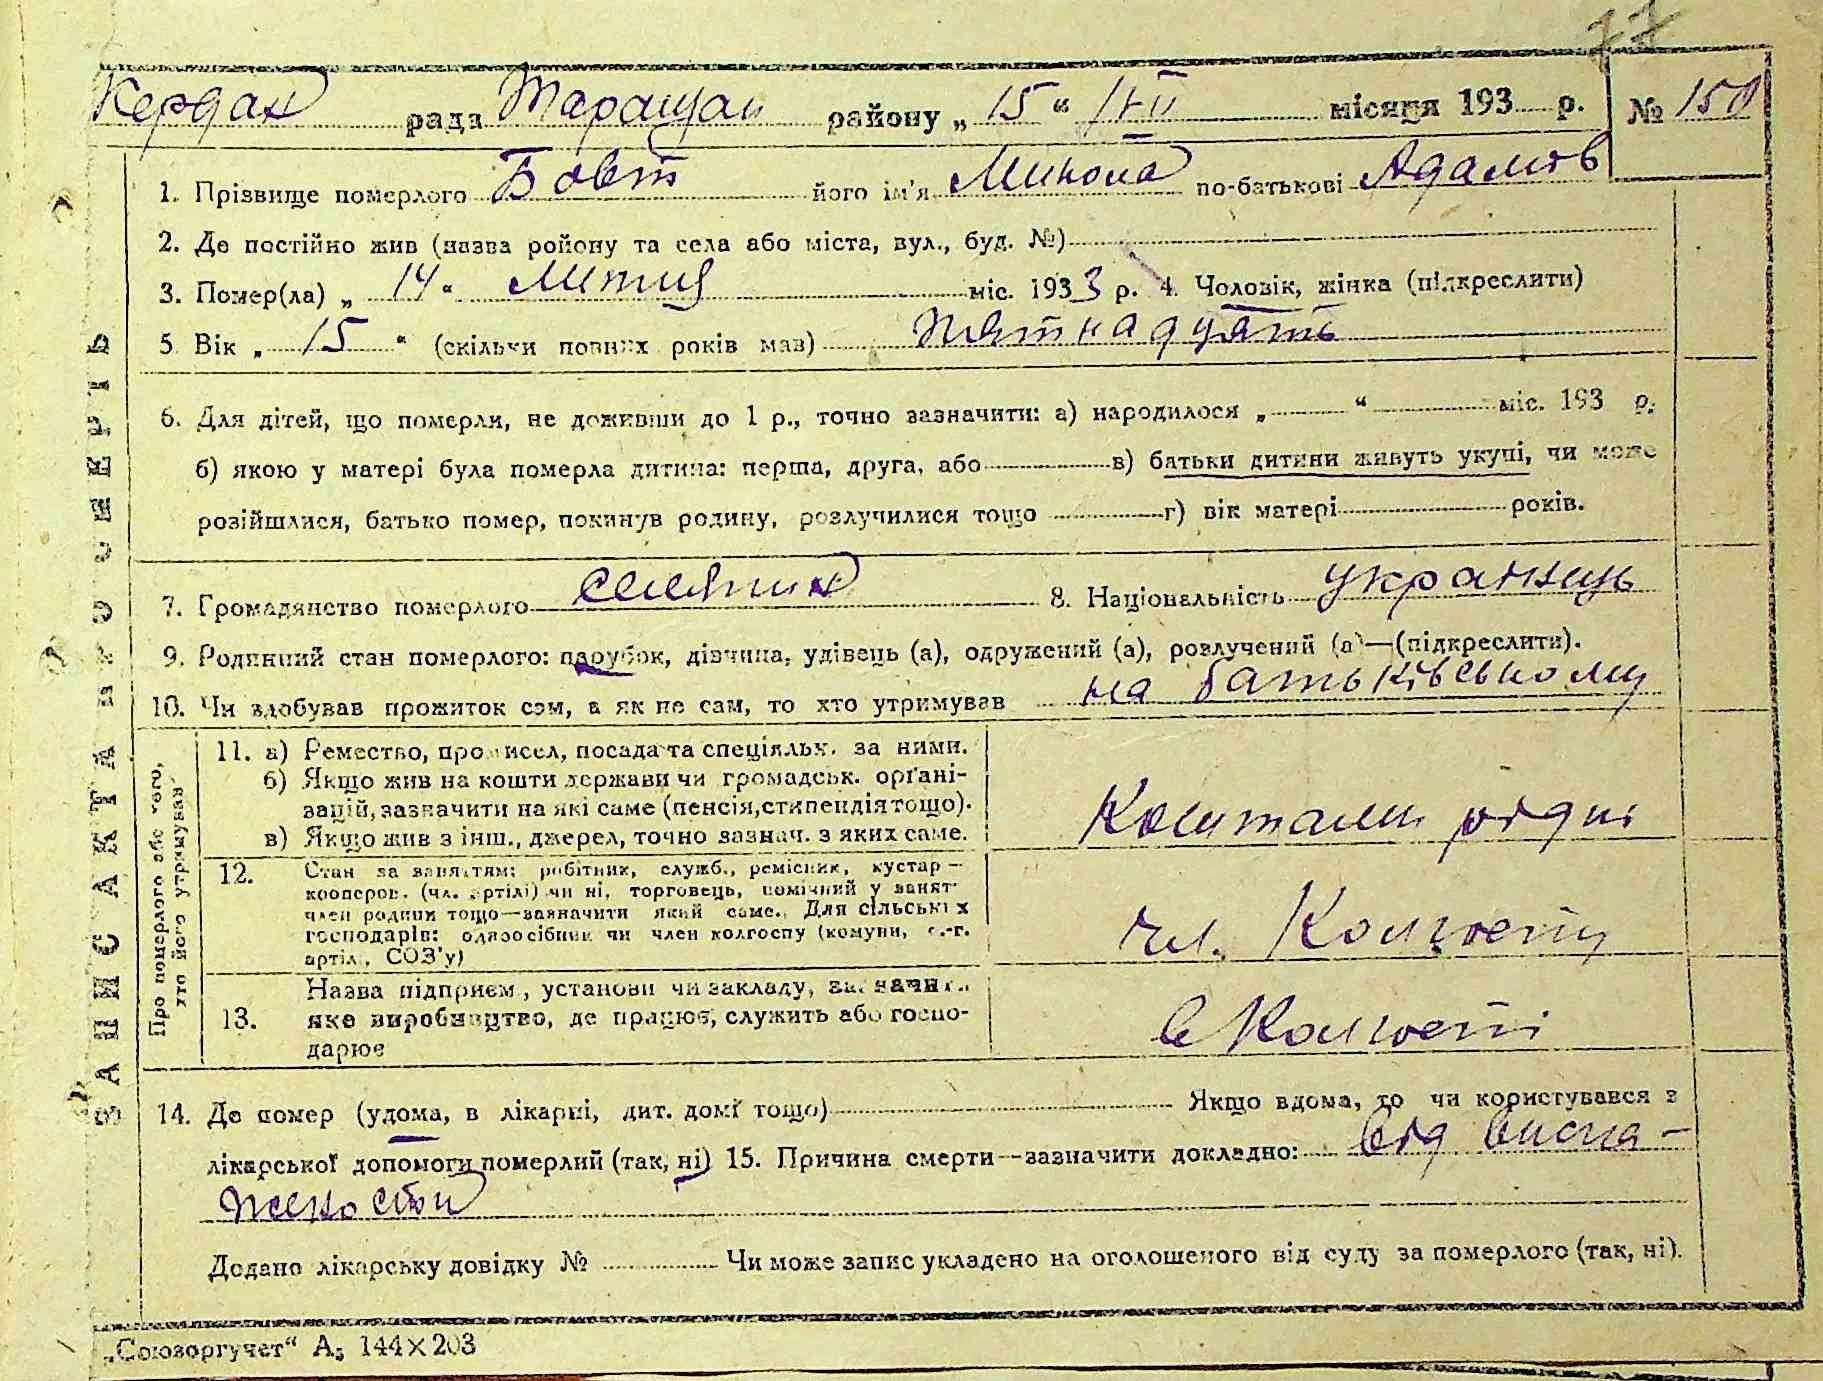 77
Кердан рада Таращан району „ 15 “ /VII місяця 193 р. № 150
ЗАПИС АКТА ПРО СМЕРТЬ
1. Прізвище померлого Бовт його ім'я Микола по-батькові Адамов
2. Де постійно жив (назва ройону та села або міста, вул., буд. №)
3. Помер(ла) „ 14 “ Липця міс. 1933 р. 4. Чоловік, жінка (підкреслити)
5 Вік „ 15 “ (скільки повних років мав) Пятнадцять
6. Для дітей, що померли, не доживши до 1 р., точно зазначити: а) народилося „ “ міс. 193 р.
б) якою у матері була померла дитина: перша, друга, або в) батьки дитини живуть укупі, чи може
розійшлися, батько помер, покинув родину, розлучилися тощо г) вік матері років.
7. Громадянство померлого селяник 8. Національність українець
9. Родинний стан померлого: парубок, дівчина, удівець (а), одружений (а), розлучений (а)—(підкреслити).
10. Чи здобував прожиток сам, а як не сам, то хто утримував на батьківському
Про померлого або того, хто його утримував
11. а) Ремество, промисел, посада та спеціяльн. за ними.
б) Якщо жив на кошти держави чи громадськ. орґані-
зацій, зазначити на які саме (пенсія, стипендія тощо).
в) Якщо жив з інш., джерел, точно зазнач. з яких саме.
рідні
12. Стан за заняттям: робітник, служб., ремісник, кустар—
кооперов. (чл. артілі) чи ні, торговець, помічний у занят
член родини тощо—зазначити який саме. Для сільських
господарів: одноосібник чи член колгоспу (комуни, с.-г.
артілі, СОЗ'у)
чл. Колгоспу
13. Назва підприєм, установи чи закладу, зазначити
яке виробництво, де працює, служить або госпо-
дарює
в Колгоспі
14. Де помер (удома, в лікарні, дит. домі тощо) Якщо вдома, то чи користувався з
лікарської допомоги померлий (так, ні) 15. Причина смерти—зазначити докладно: Від висна-
жености
Додано лікарську довідку № Чи може запис укладено на оголошеного від суду за померлого (так, ні).
„Союзоргучет“ А5 144×203